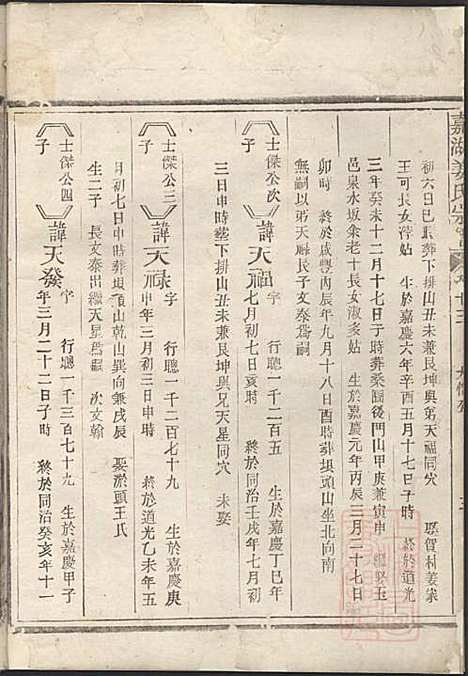 嘉湖姜氏宗
初六日巳時葬下排山丑未兼艮坤與弟天福同穴　娶賀村姜崇
王可長女淳姑　生於嘉慶六年辛酉五月十七日子時　終於道光
三年癸未十二月十七日子時葬桑園後門山甲庚兼寅申　繼娶玉
邑泉水坂余老十長女淑多姑　生於嘉慶元年丙辰三月二十七日
卯時　終於咸豐丙辰年九月十八日酉時葬垻頭山坐北向南
無嗣以弟天祿氏子文泰為嗣
士傑公次子　諱天福　字　行聰一千二百五　生於嘉慶丁巳年
七月初七日亥時　終於同治壬戌年七月初
三日申時葬下排山丑未兼艮坤與兄天星同穴　未娶
士傑公三子　諱天祿　字　行聰一千二百七十九　生於嘉慶庚
申年三月初三日申時　終於道光乙未年五
月初七日申時葬垻頭山乾山巽向兼戌辰　娶淤頭王氏
生二子　長文泰出繼天星為嗣　次文翰
士傑公四子　諱天發　字　行聰一千三百七十九　生於嘉慶甲子
年三月二十二日子時　終於同治癸亥年十一